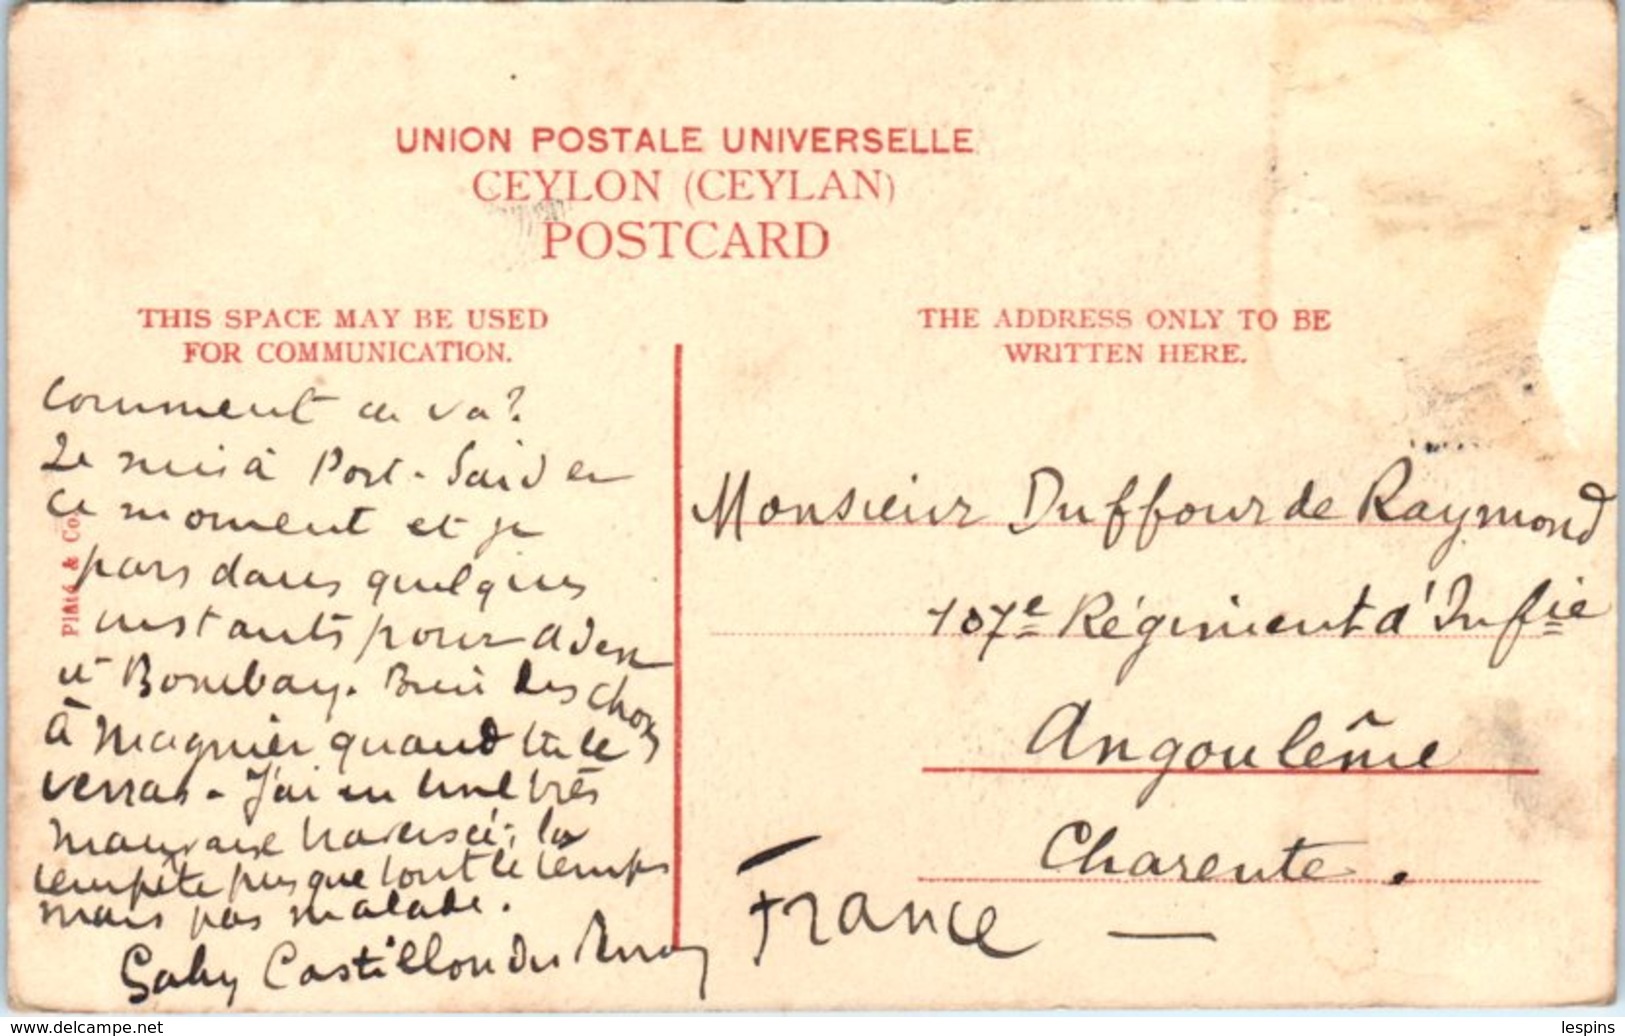 UNION POSTALE UNIVERSELLE
CEYLON (CEYLAN)
POSTCARD
THIS SPACE MAY BE USED
FOR COMMUNICATION.
THE ADDRESS ONLY TO BE
WRITTEN HERE.
Comment ca va?
Je suis à Port-Said en
ce moment et je
pars dans quelques
instants pour Aden
et Bombay. Bien des choses
à Magnier quand tu le
verras. J'ai eu une très
mauvaise traversée, la
tempête presque tout le temps
mais pas malade.
Gaby Castillon du
Plâté & Co.
Monsieur Duffour de Raymond
107e Régiment d'Infie
Angoulême
Charente.
France —
www.delcampe.net
lespins